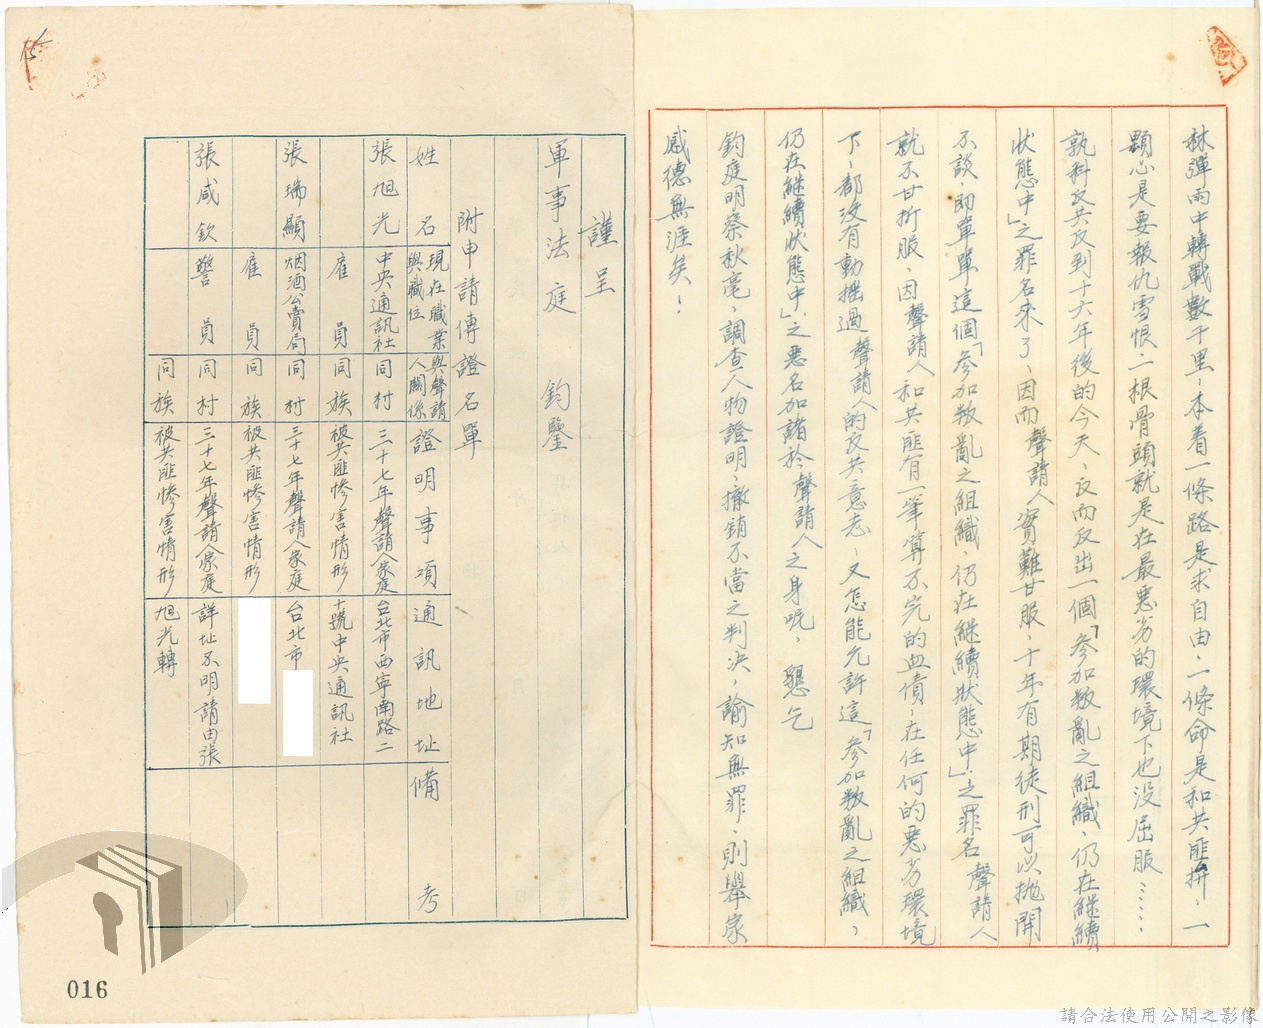 林彈雨中轉戰數千里，本着一條路是求自由，一條命是和共匪拚，一
顆心是要報仇雪恨，一根骨頭就是在最惡劣的環境下也沒屈服……
孰料反共反到十六年後的今天，反而反出一個「參加叛亂之組織，仍在繼續
狀態中」之罪名來了，因而聲請人實難甘服，十年有期徒刑可以拋開
不談，即單單這個「參加叛亂之組織，仍在繼續狀態中」之罪名聲請人
就不甘折服，因聲請人和共匪有一筆算不完的血債，在任何的惡劣環境
下，都沒有動搖過聲請人的反共意志，又怎能允許這「參加叛亂之組織，
仍在繼續狀態中」之惡名加諸於聲請人之身呢，懇乞
鈞庭明察秋毫，調查人物證明，撤銷不當之判決，諭知無罪，則舉家
感德無涯矣！
謹呈
軍事法庭 鈞鑒
附申請傳證名單
姓名 現在職業與職位 與聲請人關係 證明事項 通訊地址 備考
張旭光 中央通訊社雇員 同村同族 三十七年聲請人家庭被共匪慘害情形 台北市西寧南路二十號中央通訊社
張瑞顯 烟酒公賣局雇員 同村同族 三十七年聲請人家庭被共匪慘害情形 台北市
張咸欽 警員 同村同族 三十七年聲請人家庭被共匪慘害情形 詳址不明請由張旭光轉
15
016
請合法使用公開之影像